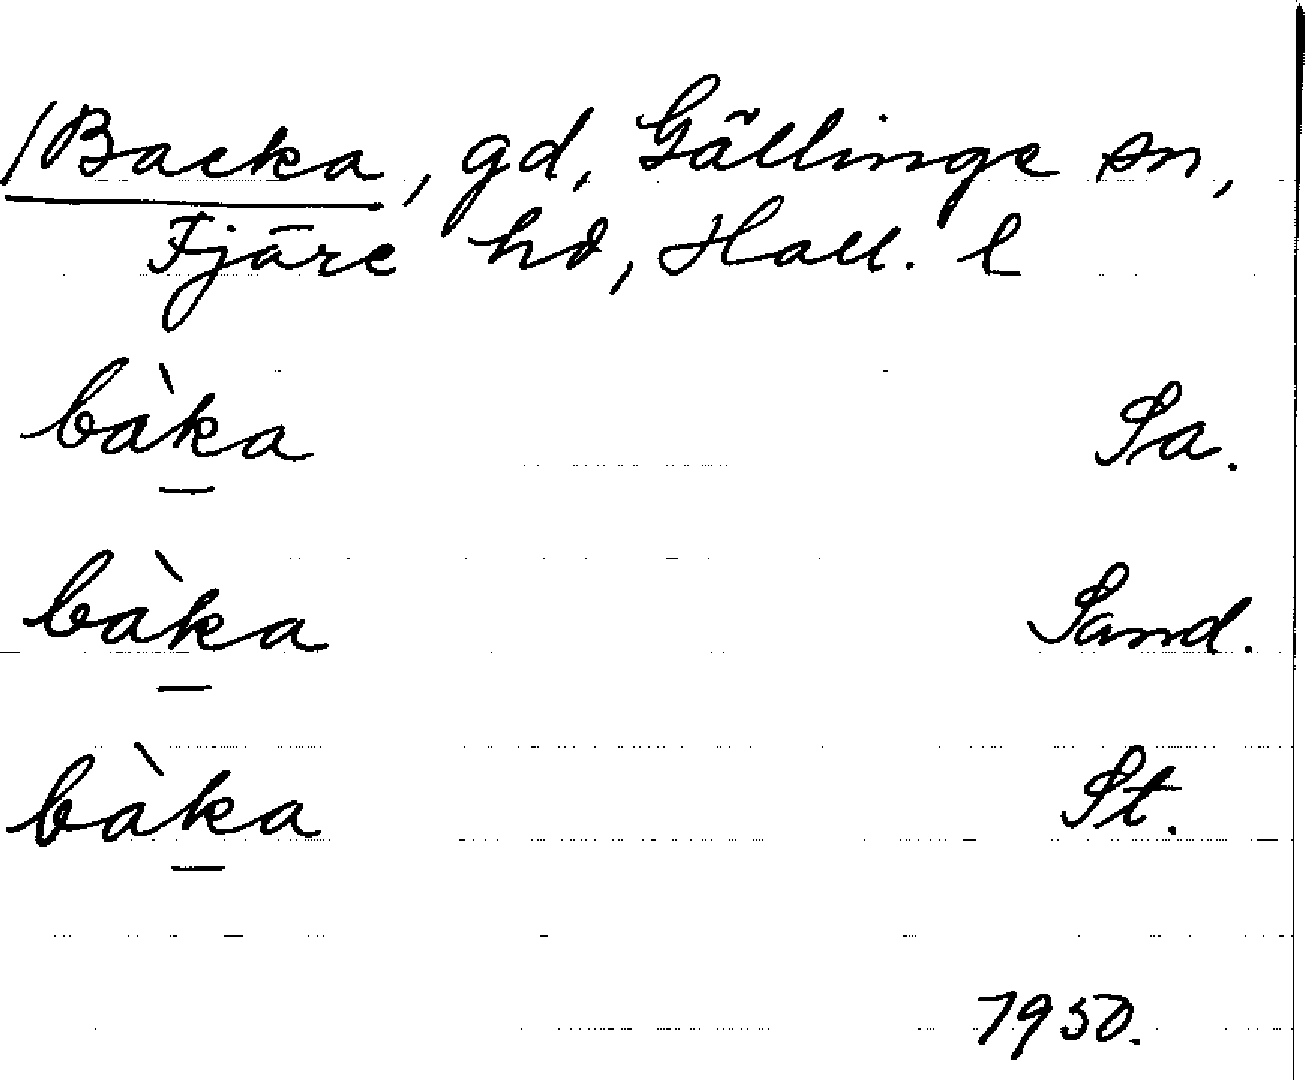 /Backa, gd, Gällinge sn,
Fjäre hd, Hall. l
bàka Sa.
bàka Sand.
bàka St.
1950.